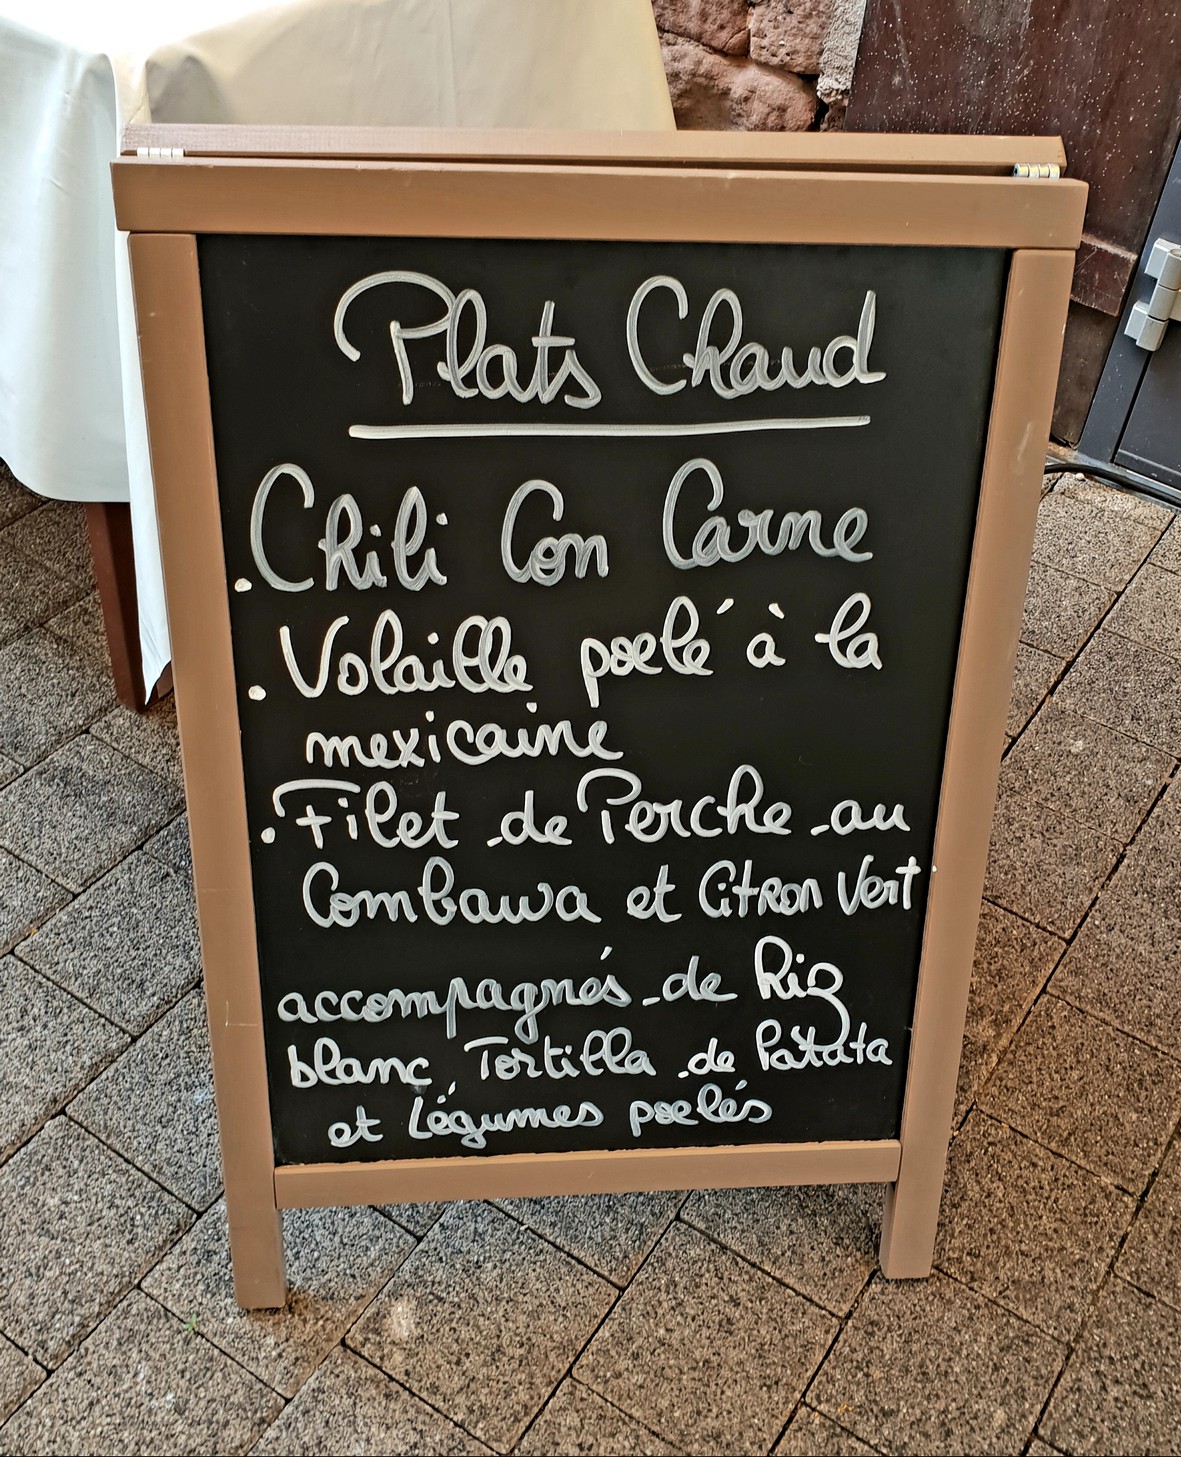 Plats Chaud
. Chili Con Carne
. Volaille poelé à la
mexicaine
. Filet de Perche au
Combawa et Citron Vert
accompagnés de Riz
blanc, Tortilla de Patata
et Légumes poelés